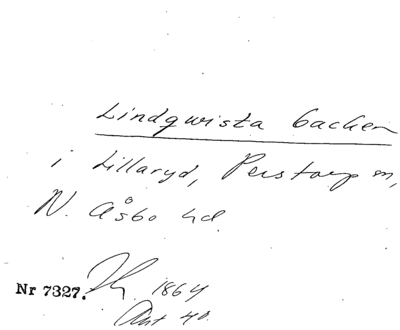 Lindqwista backen
i Lillaryd, Perstorp sn,
N. Åsbo hd.
Nr 7327. 1864
Ant 40.